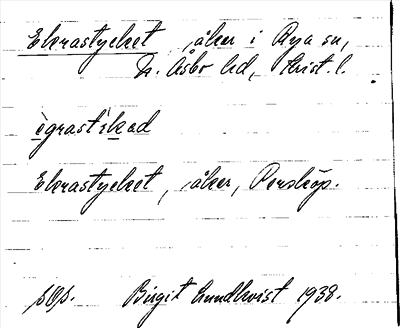 Ekrastycket, åker i Rya sn,
N. Åsbo hd, Krist. l.
ègrast`ikad
Ekrastycket, åker, Perstorp.
Birgit Lundkvist 1938.